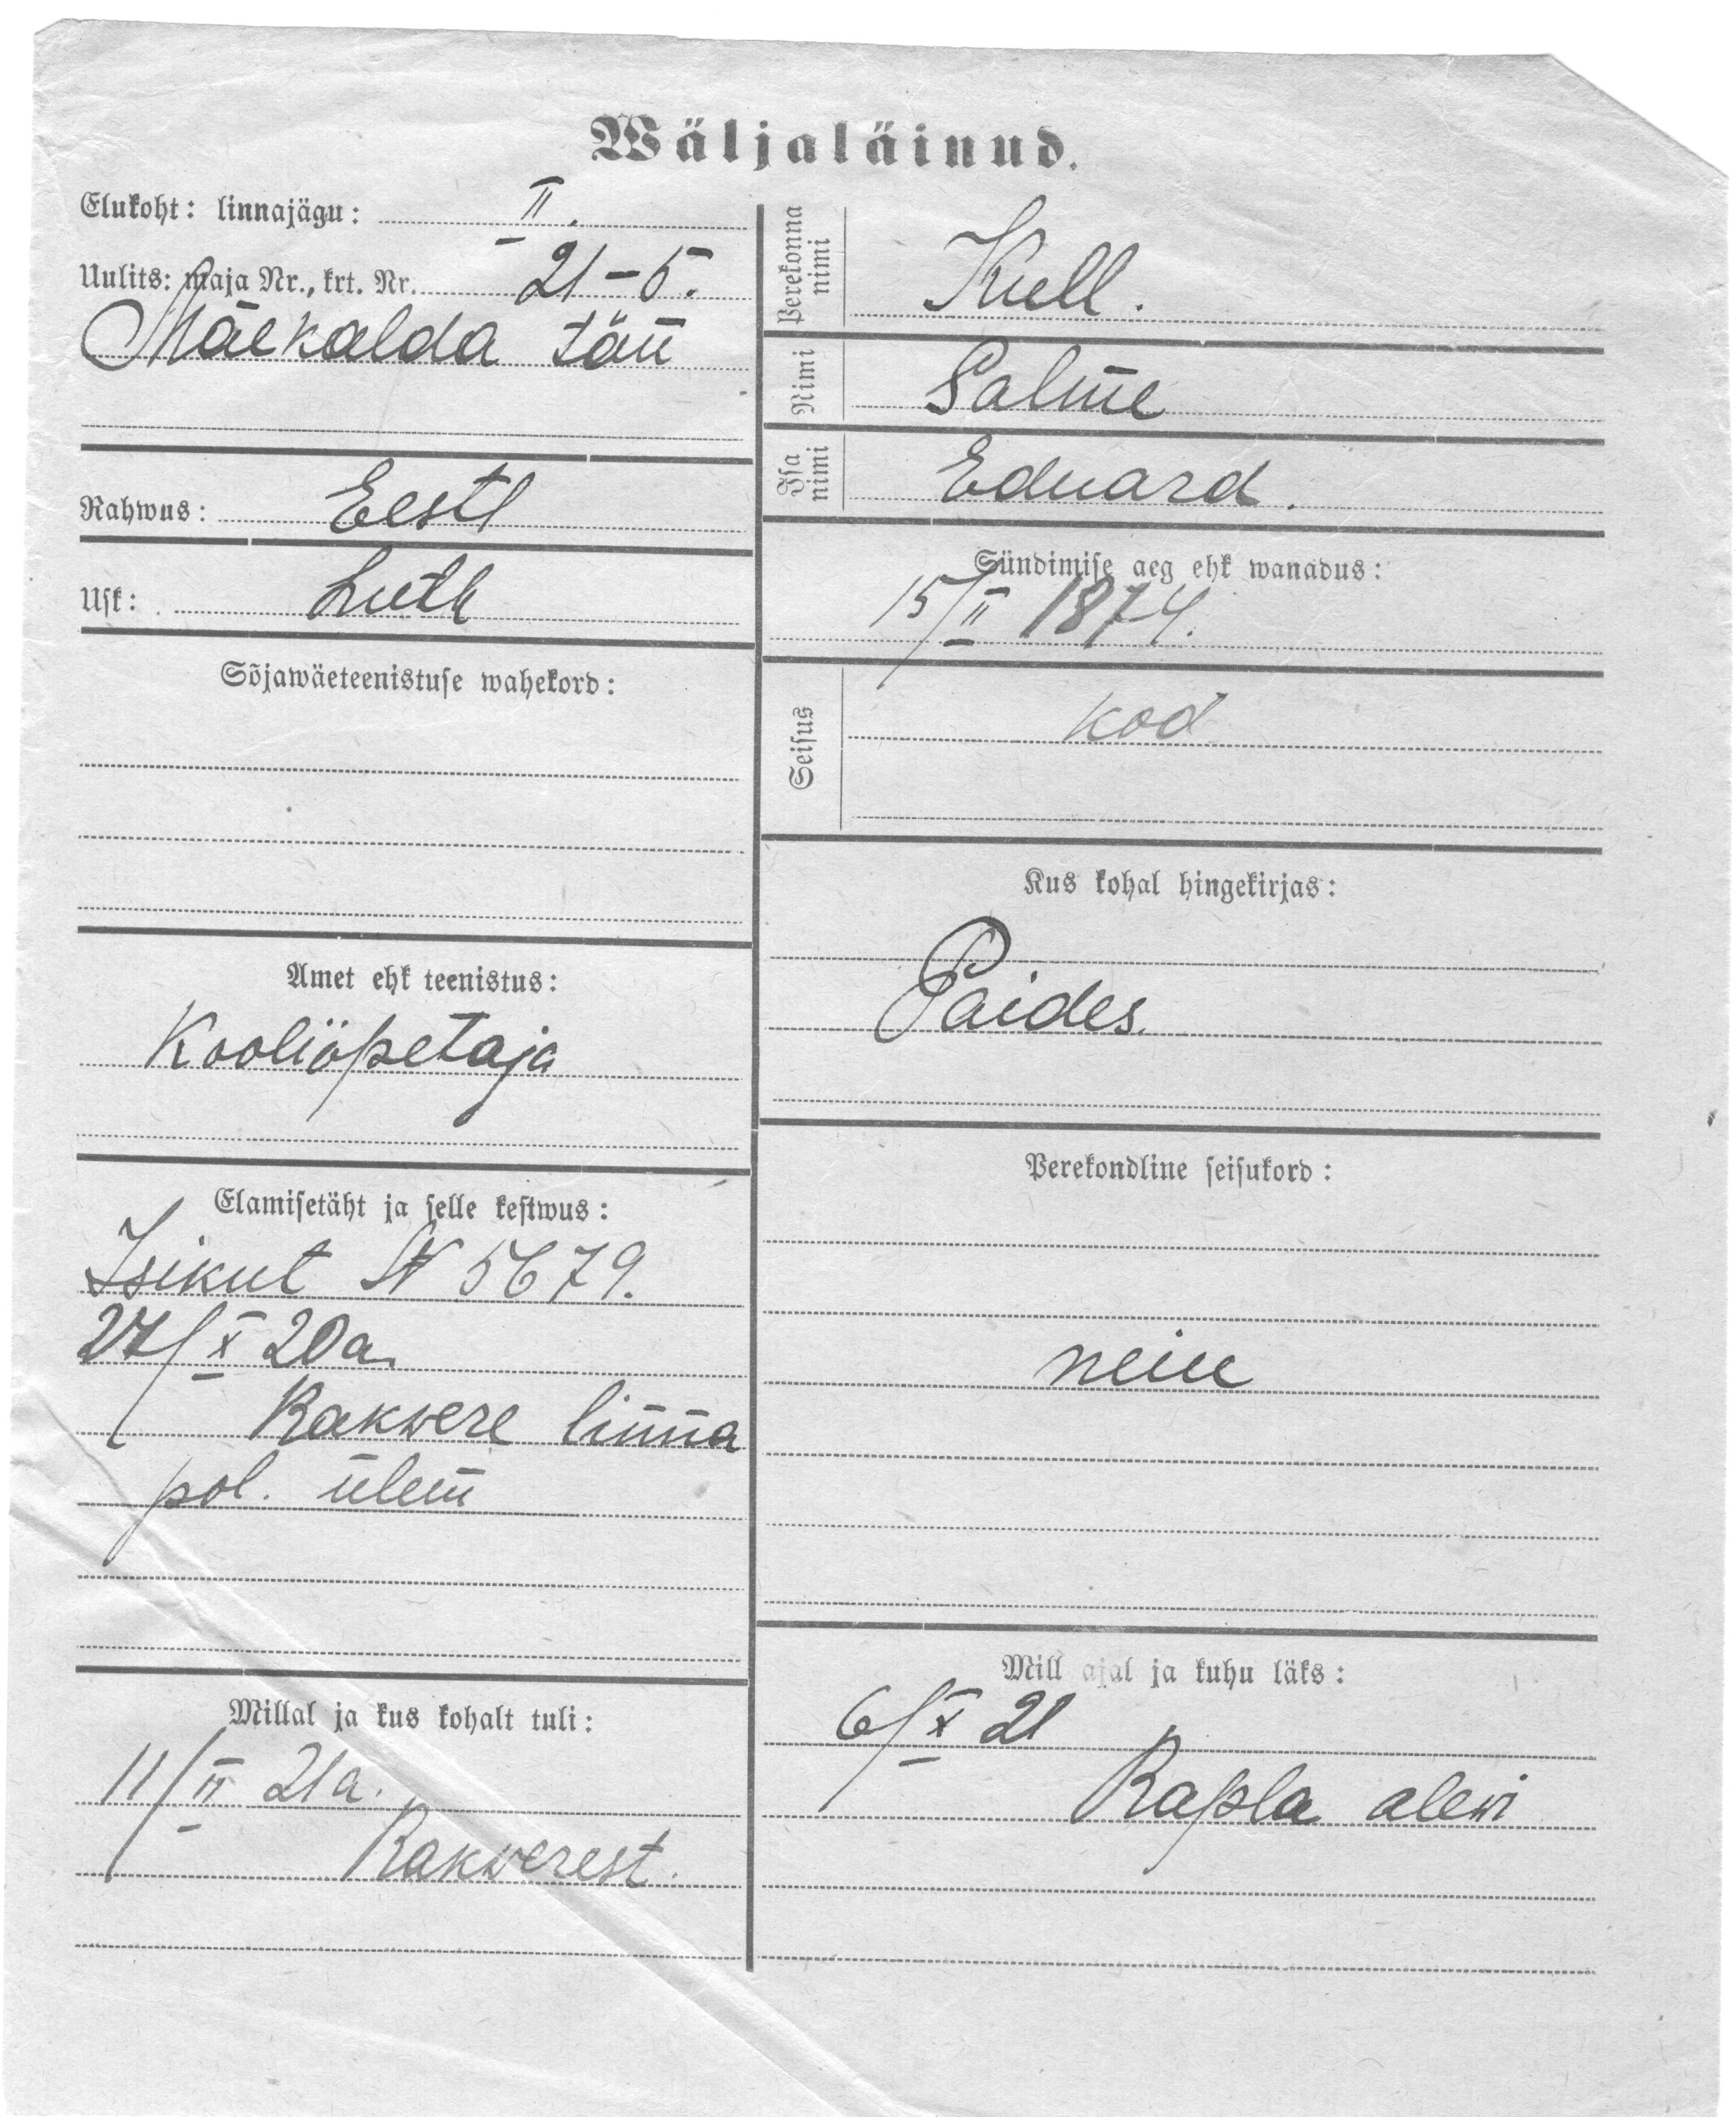 Wäljaläinud.
Elukoht: linnajägu: II.
Uulits: maja Nr., krt. Nr. 21-5.
Mäekalda tän
Rahwus: Eesti
Usk: Luth
Sõjawäeteenistuse wahekord:
Amet ehk teenistus:
Kooliõpetaja
Elamisetäht ja selle kestwus:
Isikut N 5679.
27/X 20 a.
Rakwere linna
pol. ülem
Millal ja kus kohalt tuli:
11/II 21 a.
Rakwerest.
Perekonna nimi Kull.
Nimi Salme
Isa nimi Eduard.
Sündimise aeg ehk wanadus:
15/II 1874.
Seisus kod
Kus kohal hingekirjas:
Paides.
Perekondline seisukord:
neiu
Mill ajal ja kuhu läks:
6/X 21
Rapla alewi